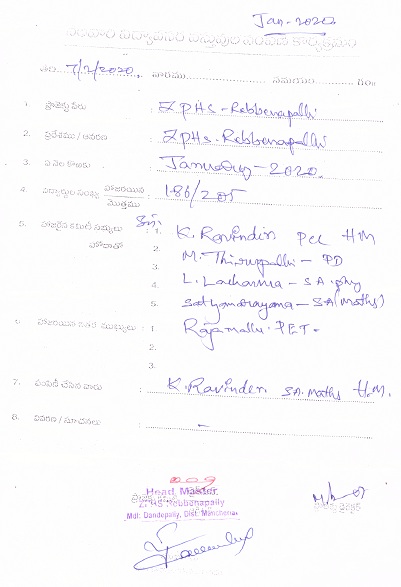 Jan-2020
తేది 7/2/2020. వారము సమయము గం॥
1. ప్రాజెక్టు పేరు : ZPHS-Rebbenapalli
2. ప్రదేశము / ఆవరణ : ZPHS-Rebbenapalli
3. ఏ నెల కొరకు : January-2020.
4. విద్యార్థుల సంఖ్య హాజరయిన : 186/205
మొత్తము
5. హాజరైన కమిటీ సభ్యులు 1. K. Ravinder. PCC HM
హోదాతో 2. M. Thirupathi - PD
3. L. Lachanna - S.A. phy
4.
5. Satyanarayana - SA(Maths)
6. హాజరయిన ఇతర ముఖ్యులు : 1 Rajamallu. PET.
2.
3.
7. పంపిణీ చేసిన వారు : K. Ravinder. SA. Maths H.M.
8. వివరణ / సూచనలు : -
Head Master
ZPHS Rebbenapally
Mdl: Dandepally, Dist. Mancherial